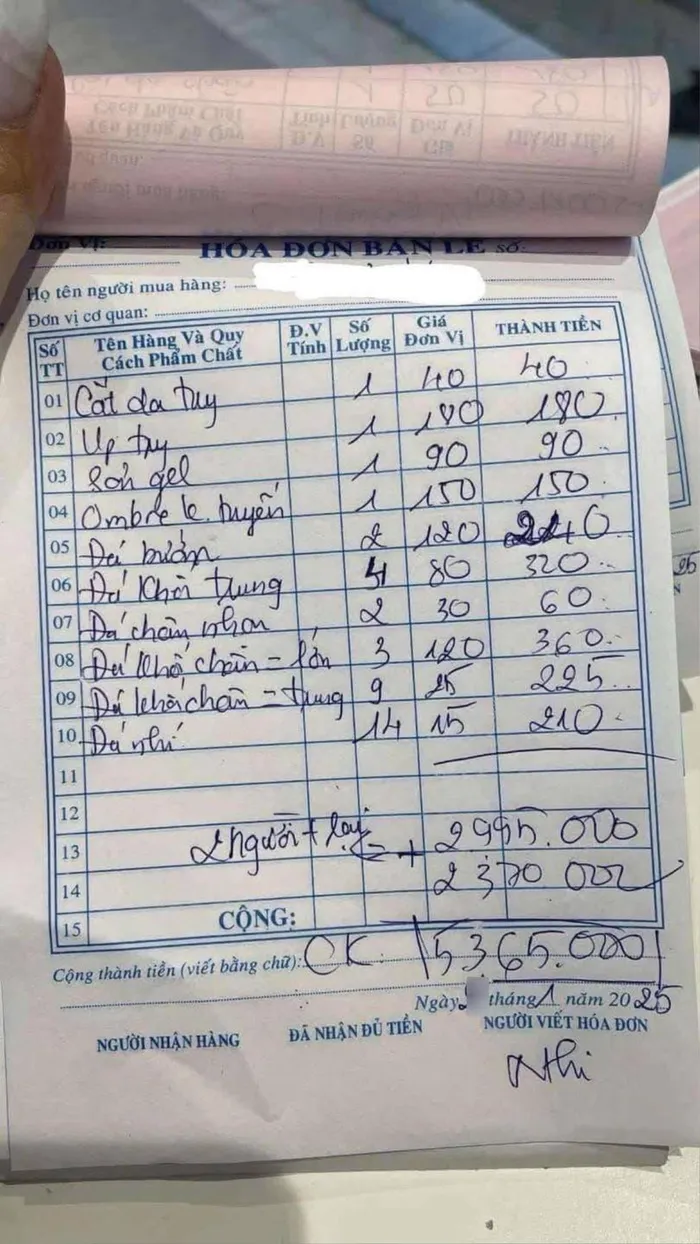 Đơn Vị:
HÓA ĐƠN BÁN LẺ Số:
Họ tên người mua hàng:
Đơn vị cơ quan:
Số TT Tên Hàng Và Quy Cách Phẩm Chất Đ.V Tính Số Lượng Giá Đơn Vị THÀNH TIỀN
01 Cắt da tay 1 40 40
02 Up tay 1 180 180
03 Sơn gel 1 90 90
04 Ombre k. tuyến 1 150 150
05 Đá bướm 2 120 240
06 Đá khối trung 4 80 320
07 Đá chân nhọn 2 30 60
08 Đá khối chân - lớn 3 120 360
09 Đá khối chân - trung 9 25 225
10 Đá nhí 14 15 210
11
12
13 2 người + lại = + 2995.000
14 2370 000
15 CỘNG:
Cộng thành tiền (viết bằng chữ): CK. 5365.000
Ngày tháng 1 năm 2025
NGƯỜI NHẬN HÀNG ĐÃ NHẬN ĐỦ TIỀN NGƯỜI VIẾT HÓA ĐƠN
Nhi